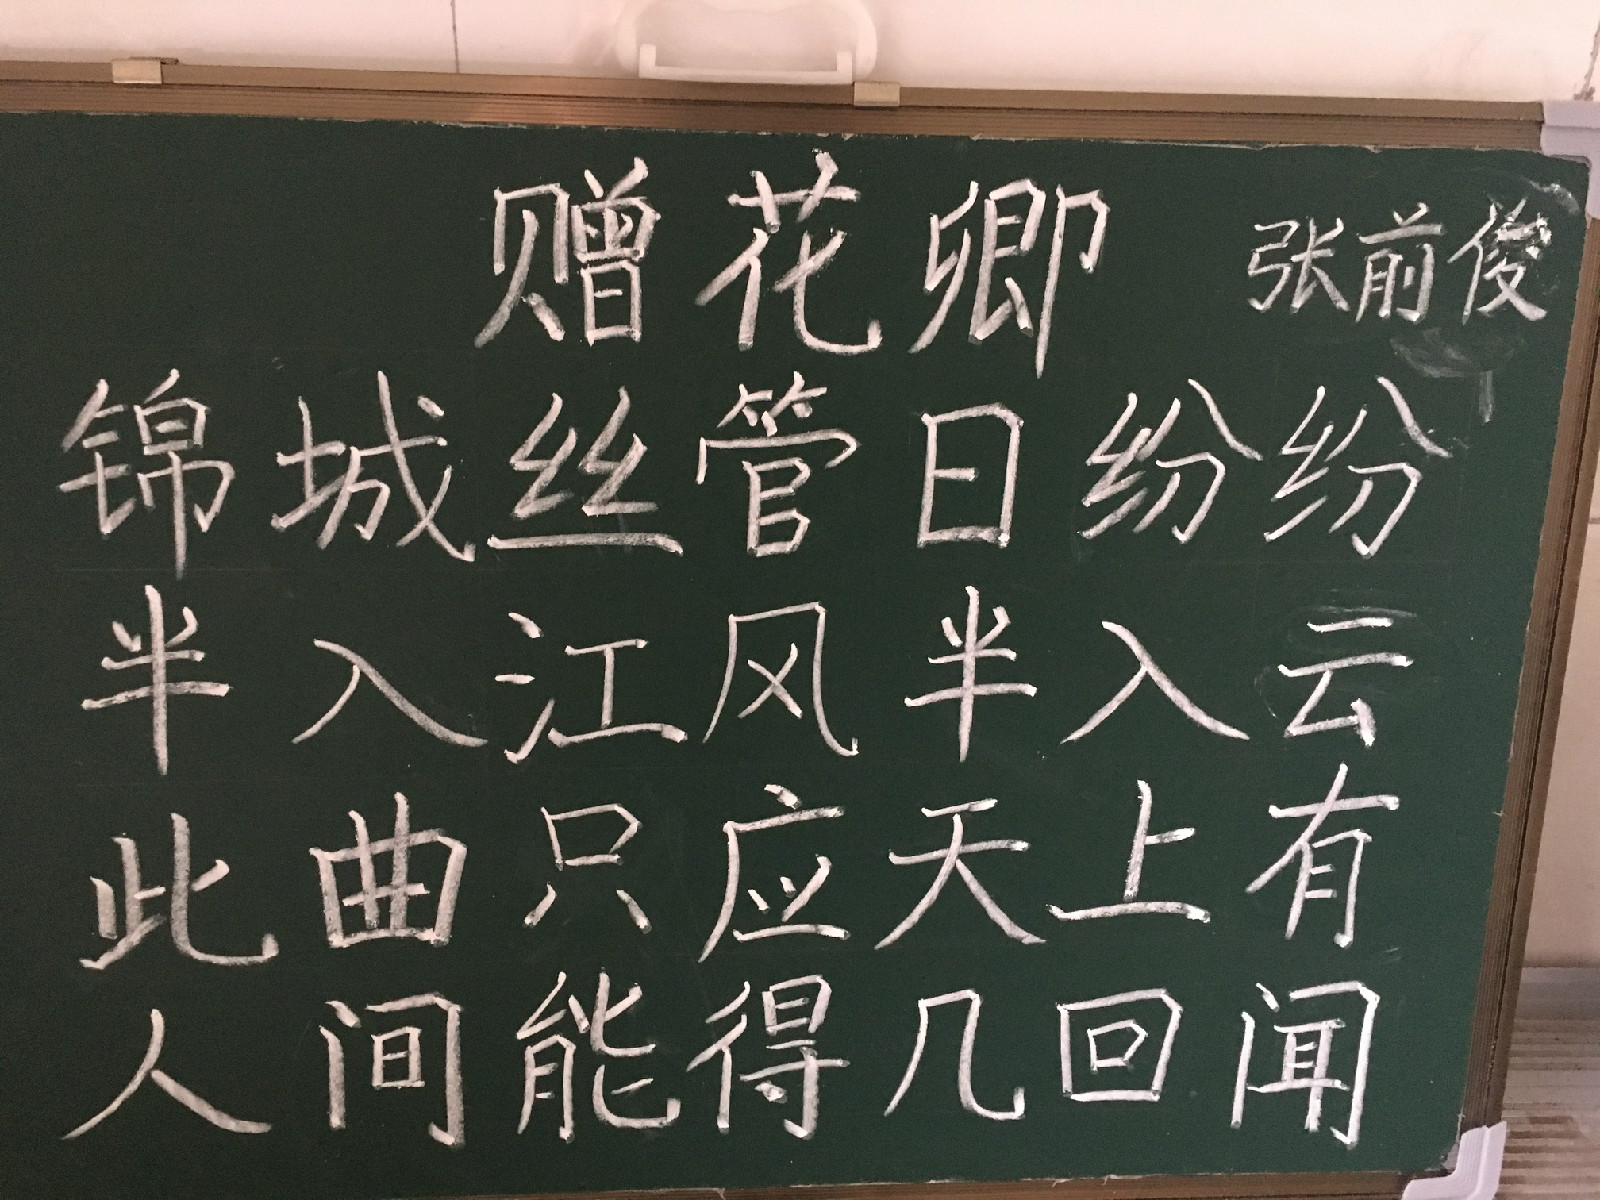 赠花卿 张前俊
锦城丝管日纷纷
半入江风半入云
此曲只应天上有
人间能得几回闻